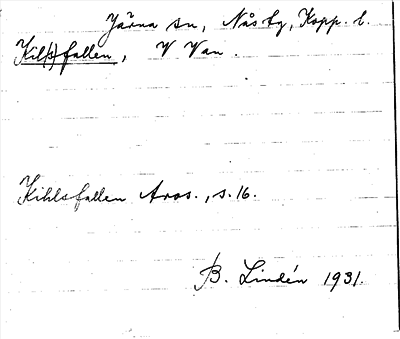 Järna sn, Nås tg, Kopp. l.
Kil(s)fallen, V Van.
Kihlsfallen Aros., s. 16.
B. Lindén 1931.